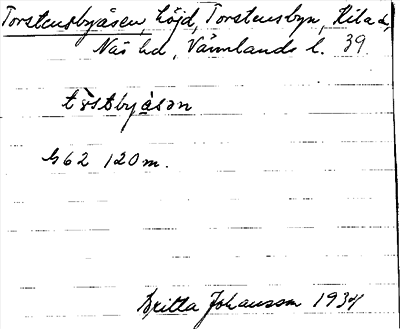 Torstensbyåsen, höjd, Torstensbyn, Kila sn,
Näs hd, Värmlands l. 39.
tɔ̀stbyåsən
b62 120 m.
Britta Johansson 1934